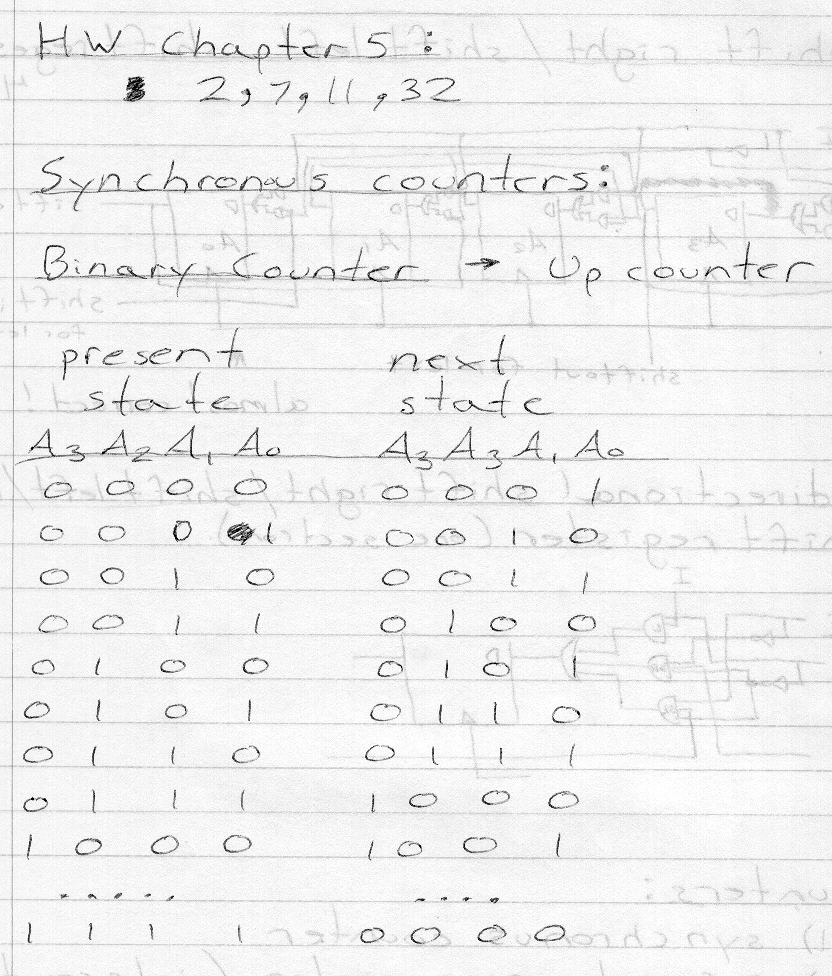 HW Chapter 5:
2, 7, 11, 32
Synchronous counters:
Binary Counter → Up counter
present next
state state
A3 A2 A1 A0 A3 A3 A1 A0
0 0 0 0 0 0 0 1
0 0 0 1 0 0 1 0
0 0 1 0 0 0 1 1
0 0 1 1 0 1 0 0
0 1 0 0 0 1 0 1
0 1 0 1 0 1 1 0
0 1 1 0 0 1 1 1
0 1 1 1 1 0 0 0
1 0 0 0 1 0 0 1
..... ....
1 1 1 1 0 0 0 0